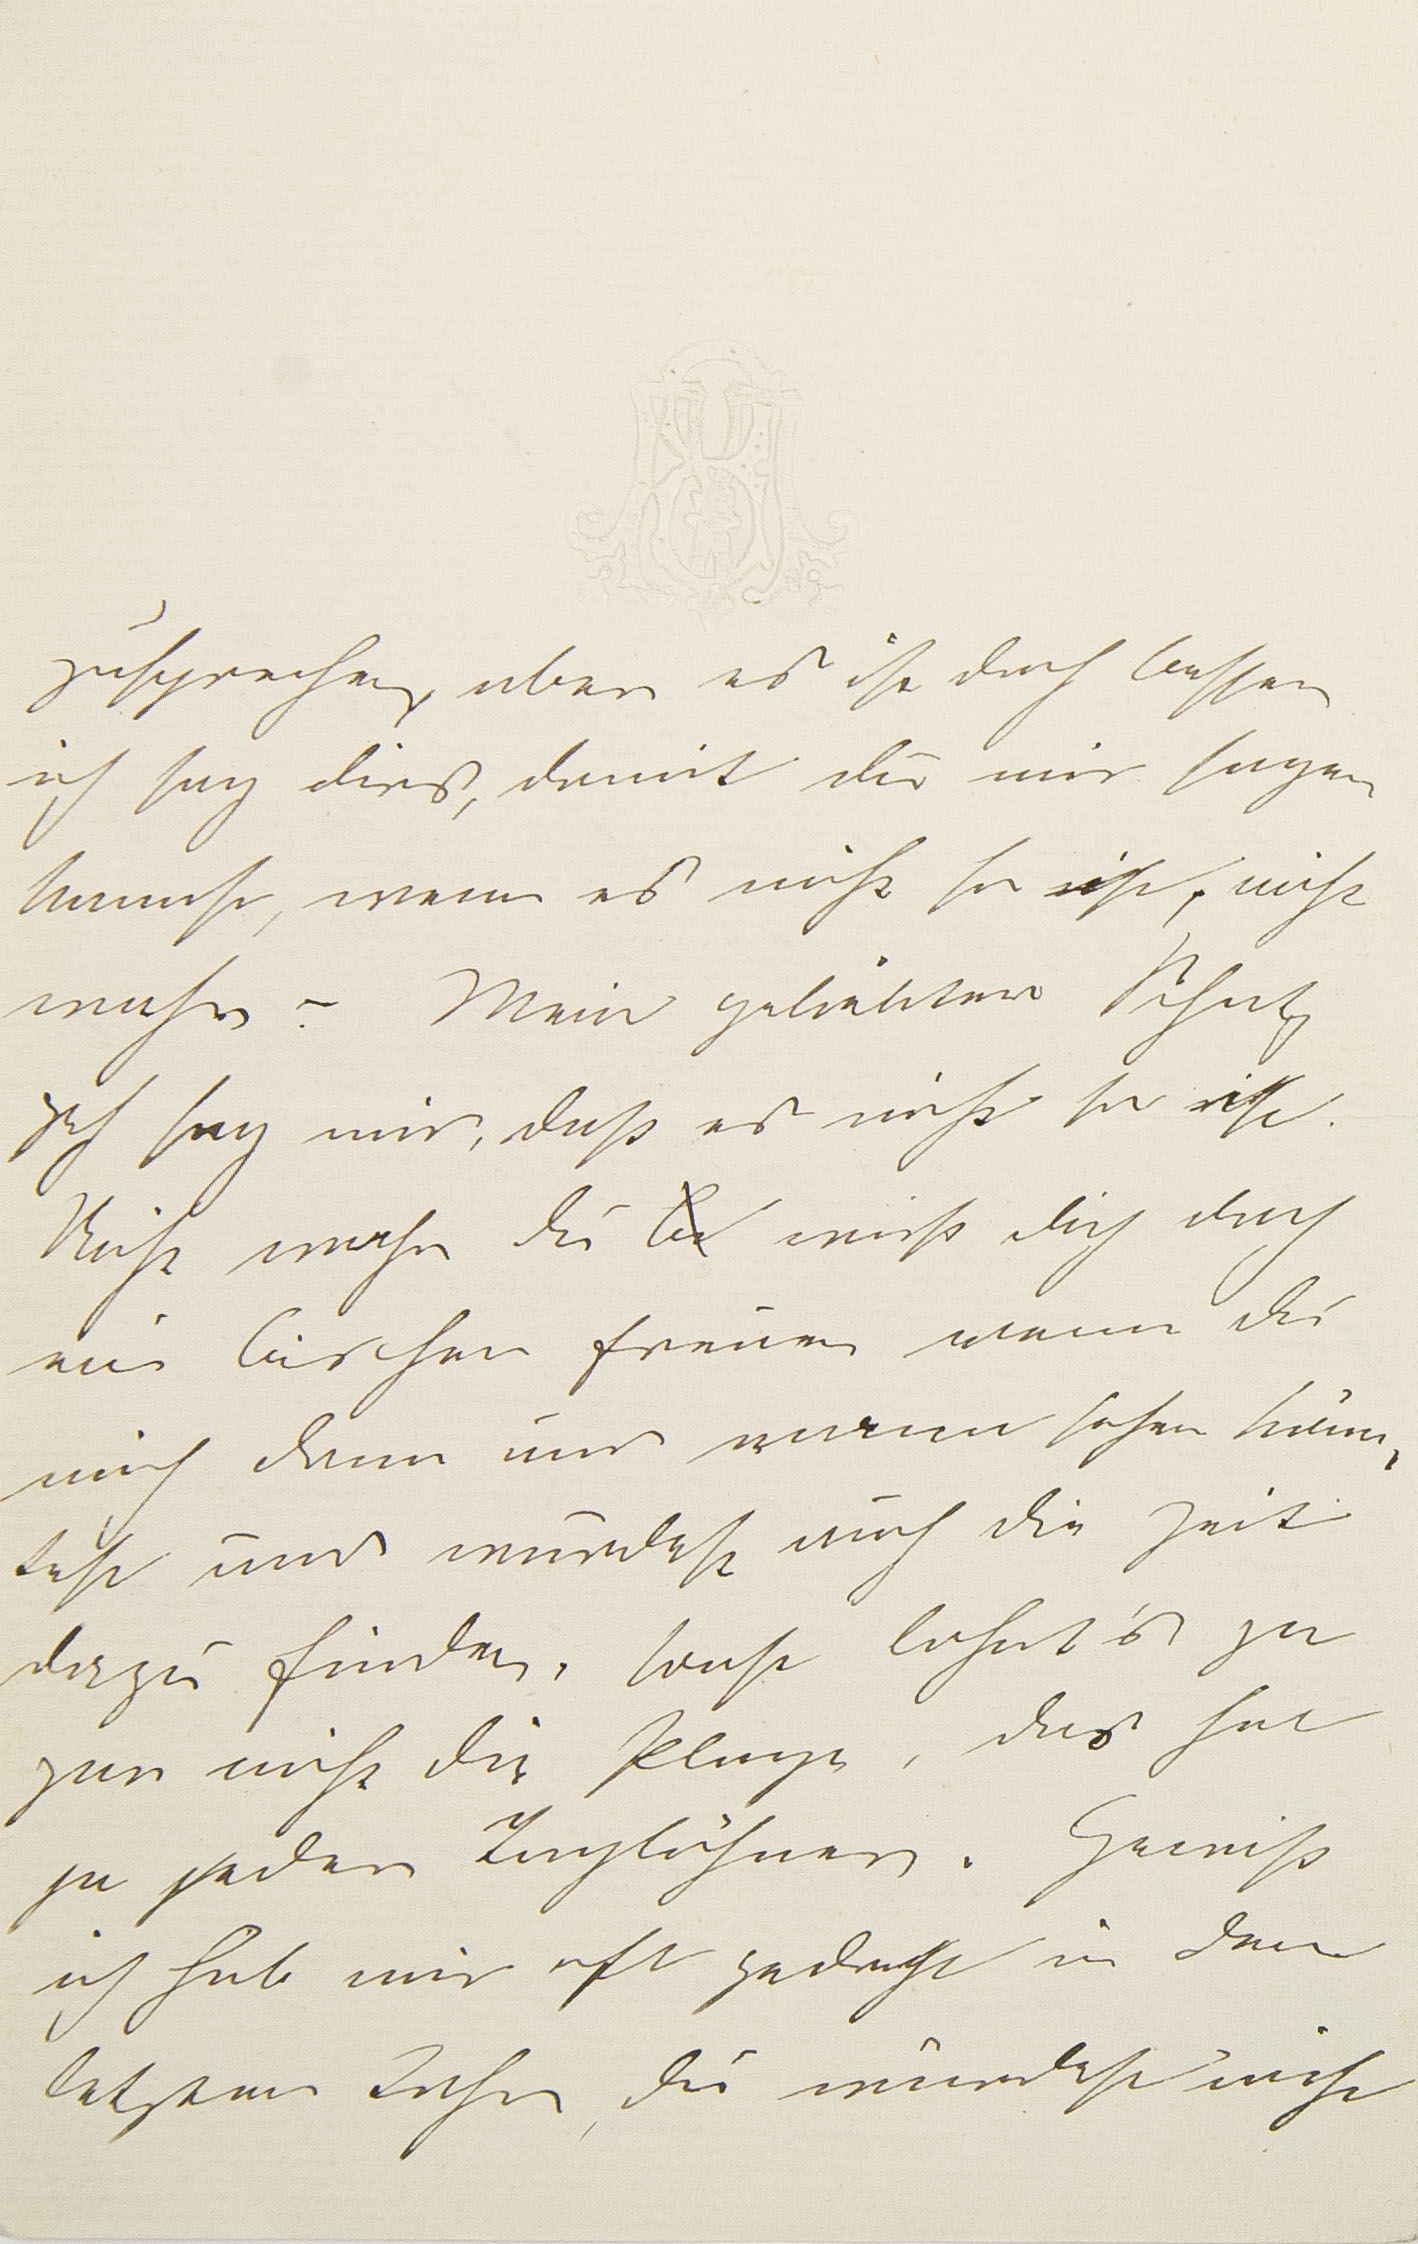 zusprechen, aber es ist doch besser
ich sag dies, damit du mir sagen
kannst, wenn es nicht so ist, nicht
wahr? Mein geliebter Schatz
geh sag mir, daß es nicht so ist.
Nicht wahr du wirst dich doch
ein bischen freuen wenn du
mich dann und wann sehen könn,
test und würdest auch die Zeit
dazu finden, sonst lohnt's ja
gar nicht die Plage, das hat
ja jeder Taglöhner. Gewiß
ich hab mir oft gedacht in dem
letzten Jahr, du würdest nicht